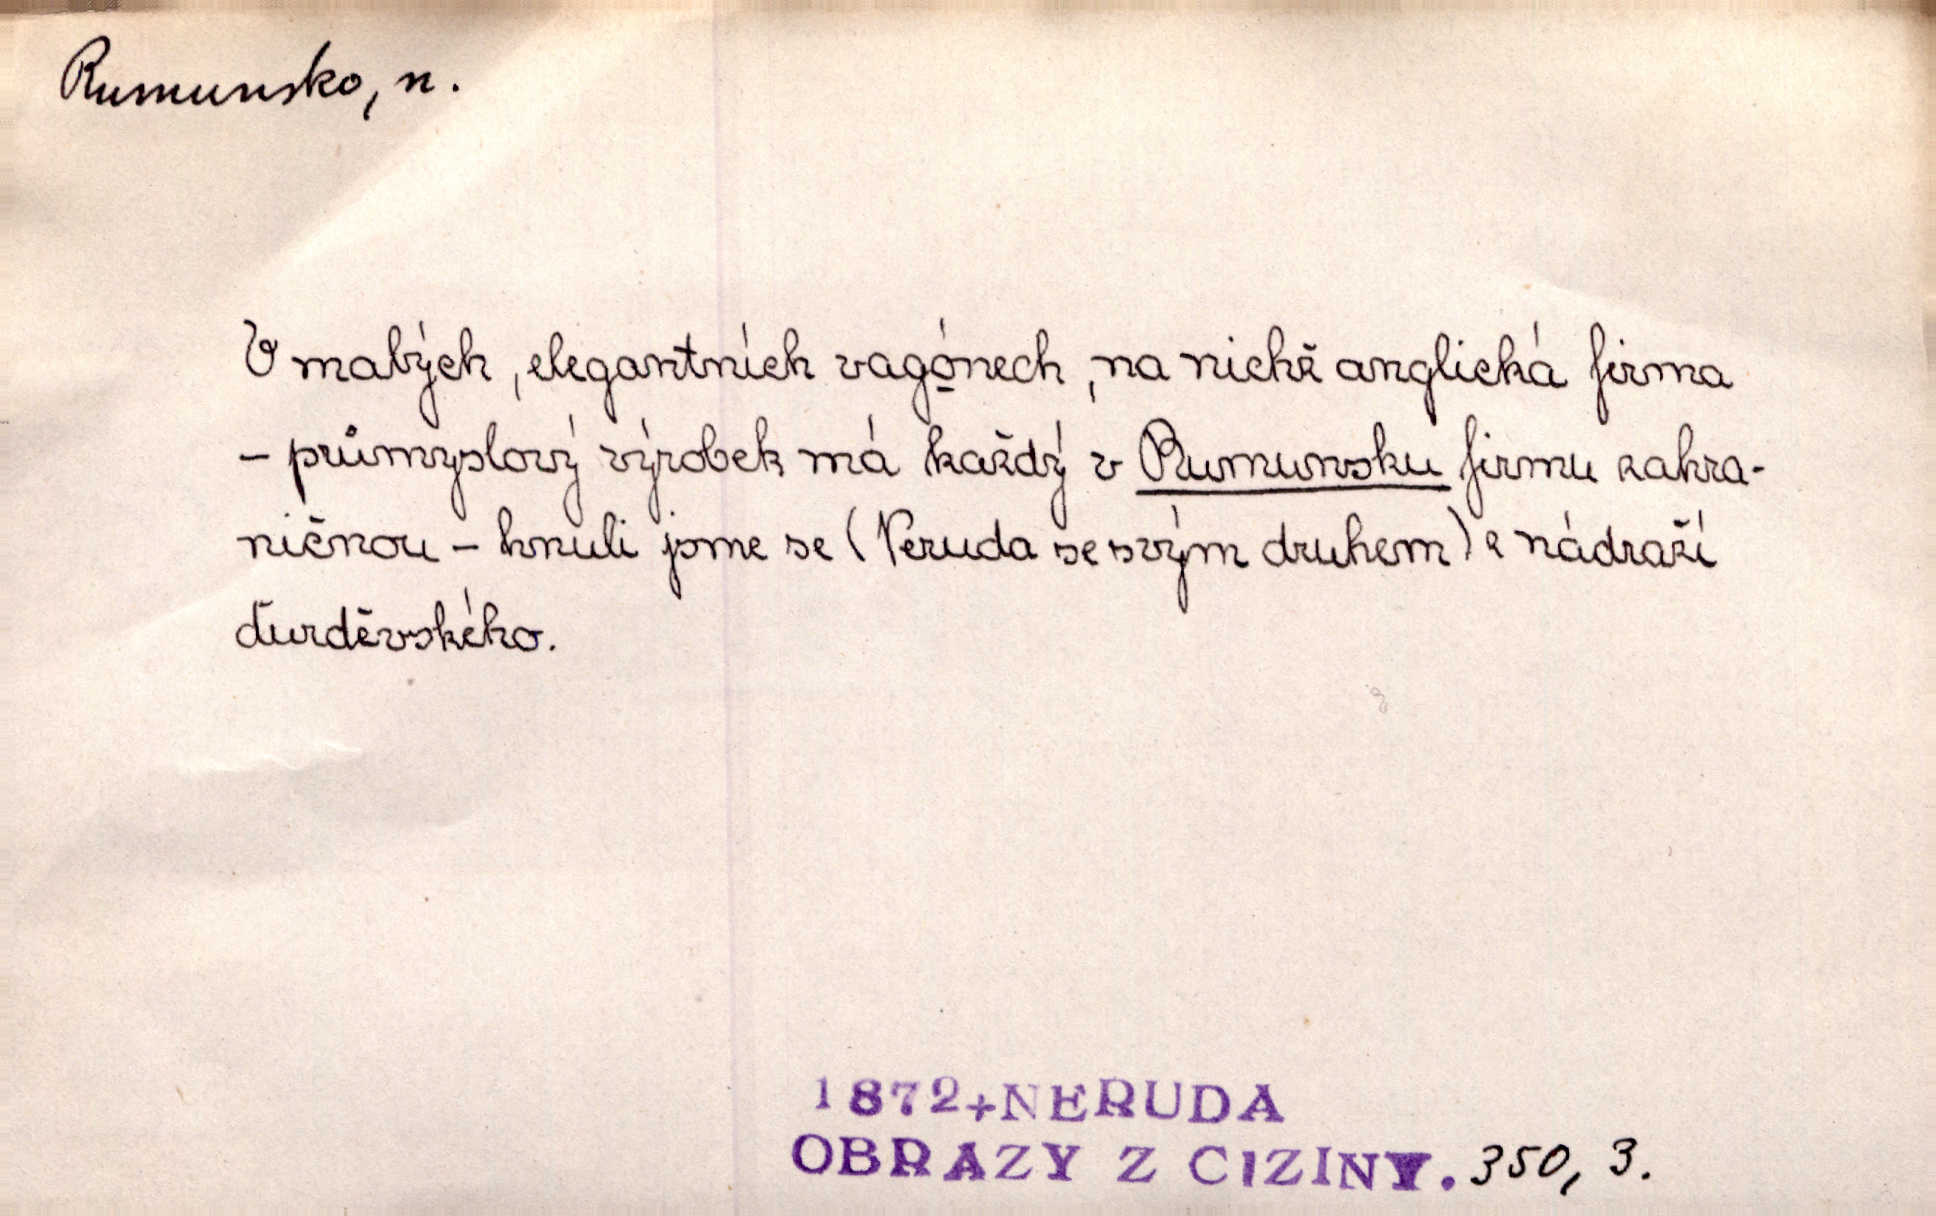 Rumunsko, n.
V malých, elegantních vagónech, na nichž anglická firma
– průmyslový výrobek má každý v Rumunsku firmu zahra-
ničnou – hnuli jsme se (Neruda se svým druhem) z nádraží
ďurděvského.
1872+NERUDA
OBRAZY Z CIZINY. 350, 3.